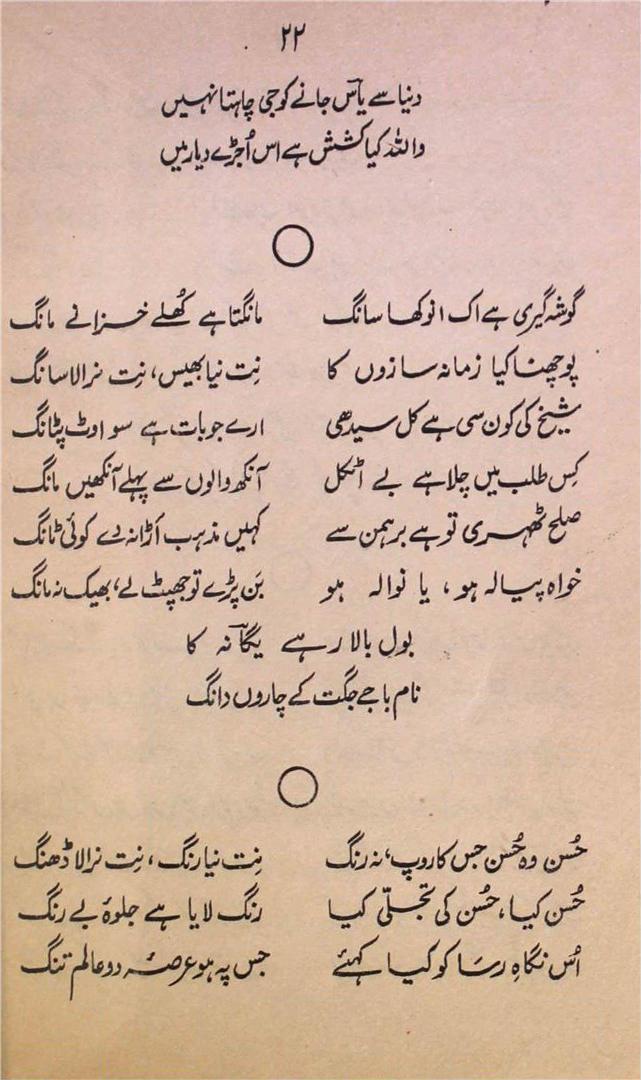 ۲۲
دنیا سے یاسؔ جانے کو جی چاہتا نہیں
واللہ کیا کشش ہے اس اُجڑے دیار میں
گوشہ گیری ہے اک انوکھا سانگ مانگتا ہے کھُلے خزانے مانگ
پوچھنا کیا زمانہ سازوں کا نِت نیا بھیس، نِت نرالا سانگ
شیخ کی کون سی ہے کل سیدھی ارے جو بات ہے سو اوٹ پٹانگ
کِس طلب میں چلا ہے بے اٹکل آنکھ والوں سے پہلے آنکھیں مانگ
صلح ٹھہری تو ہے برہمن سے کہیں مذہب اَڑا نہ دے کوئی ٹانگ
خواہ پیالہ ہو، یا نوالہ ہو بَن پڑے تو جھپٹ لے، بھیک نہ مانگ
بول بالا رہے یگانہؔ کا
نام باجے جگت کے چاروں دانگ
حُسن وہ حُسن جس کا روپ، نہ رنگ نِت نیا رنگ، نِت نرالا ڈھنگ
حُسن کیا، حُسن کی تجلّی کیا رنگ لایا ہے جلوۂ بے رنگ
اُس نگاہِ رسا کو کیا کہئے جس پہ ہو عرصۂ دو عالم تنگ